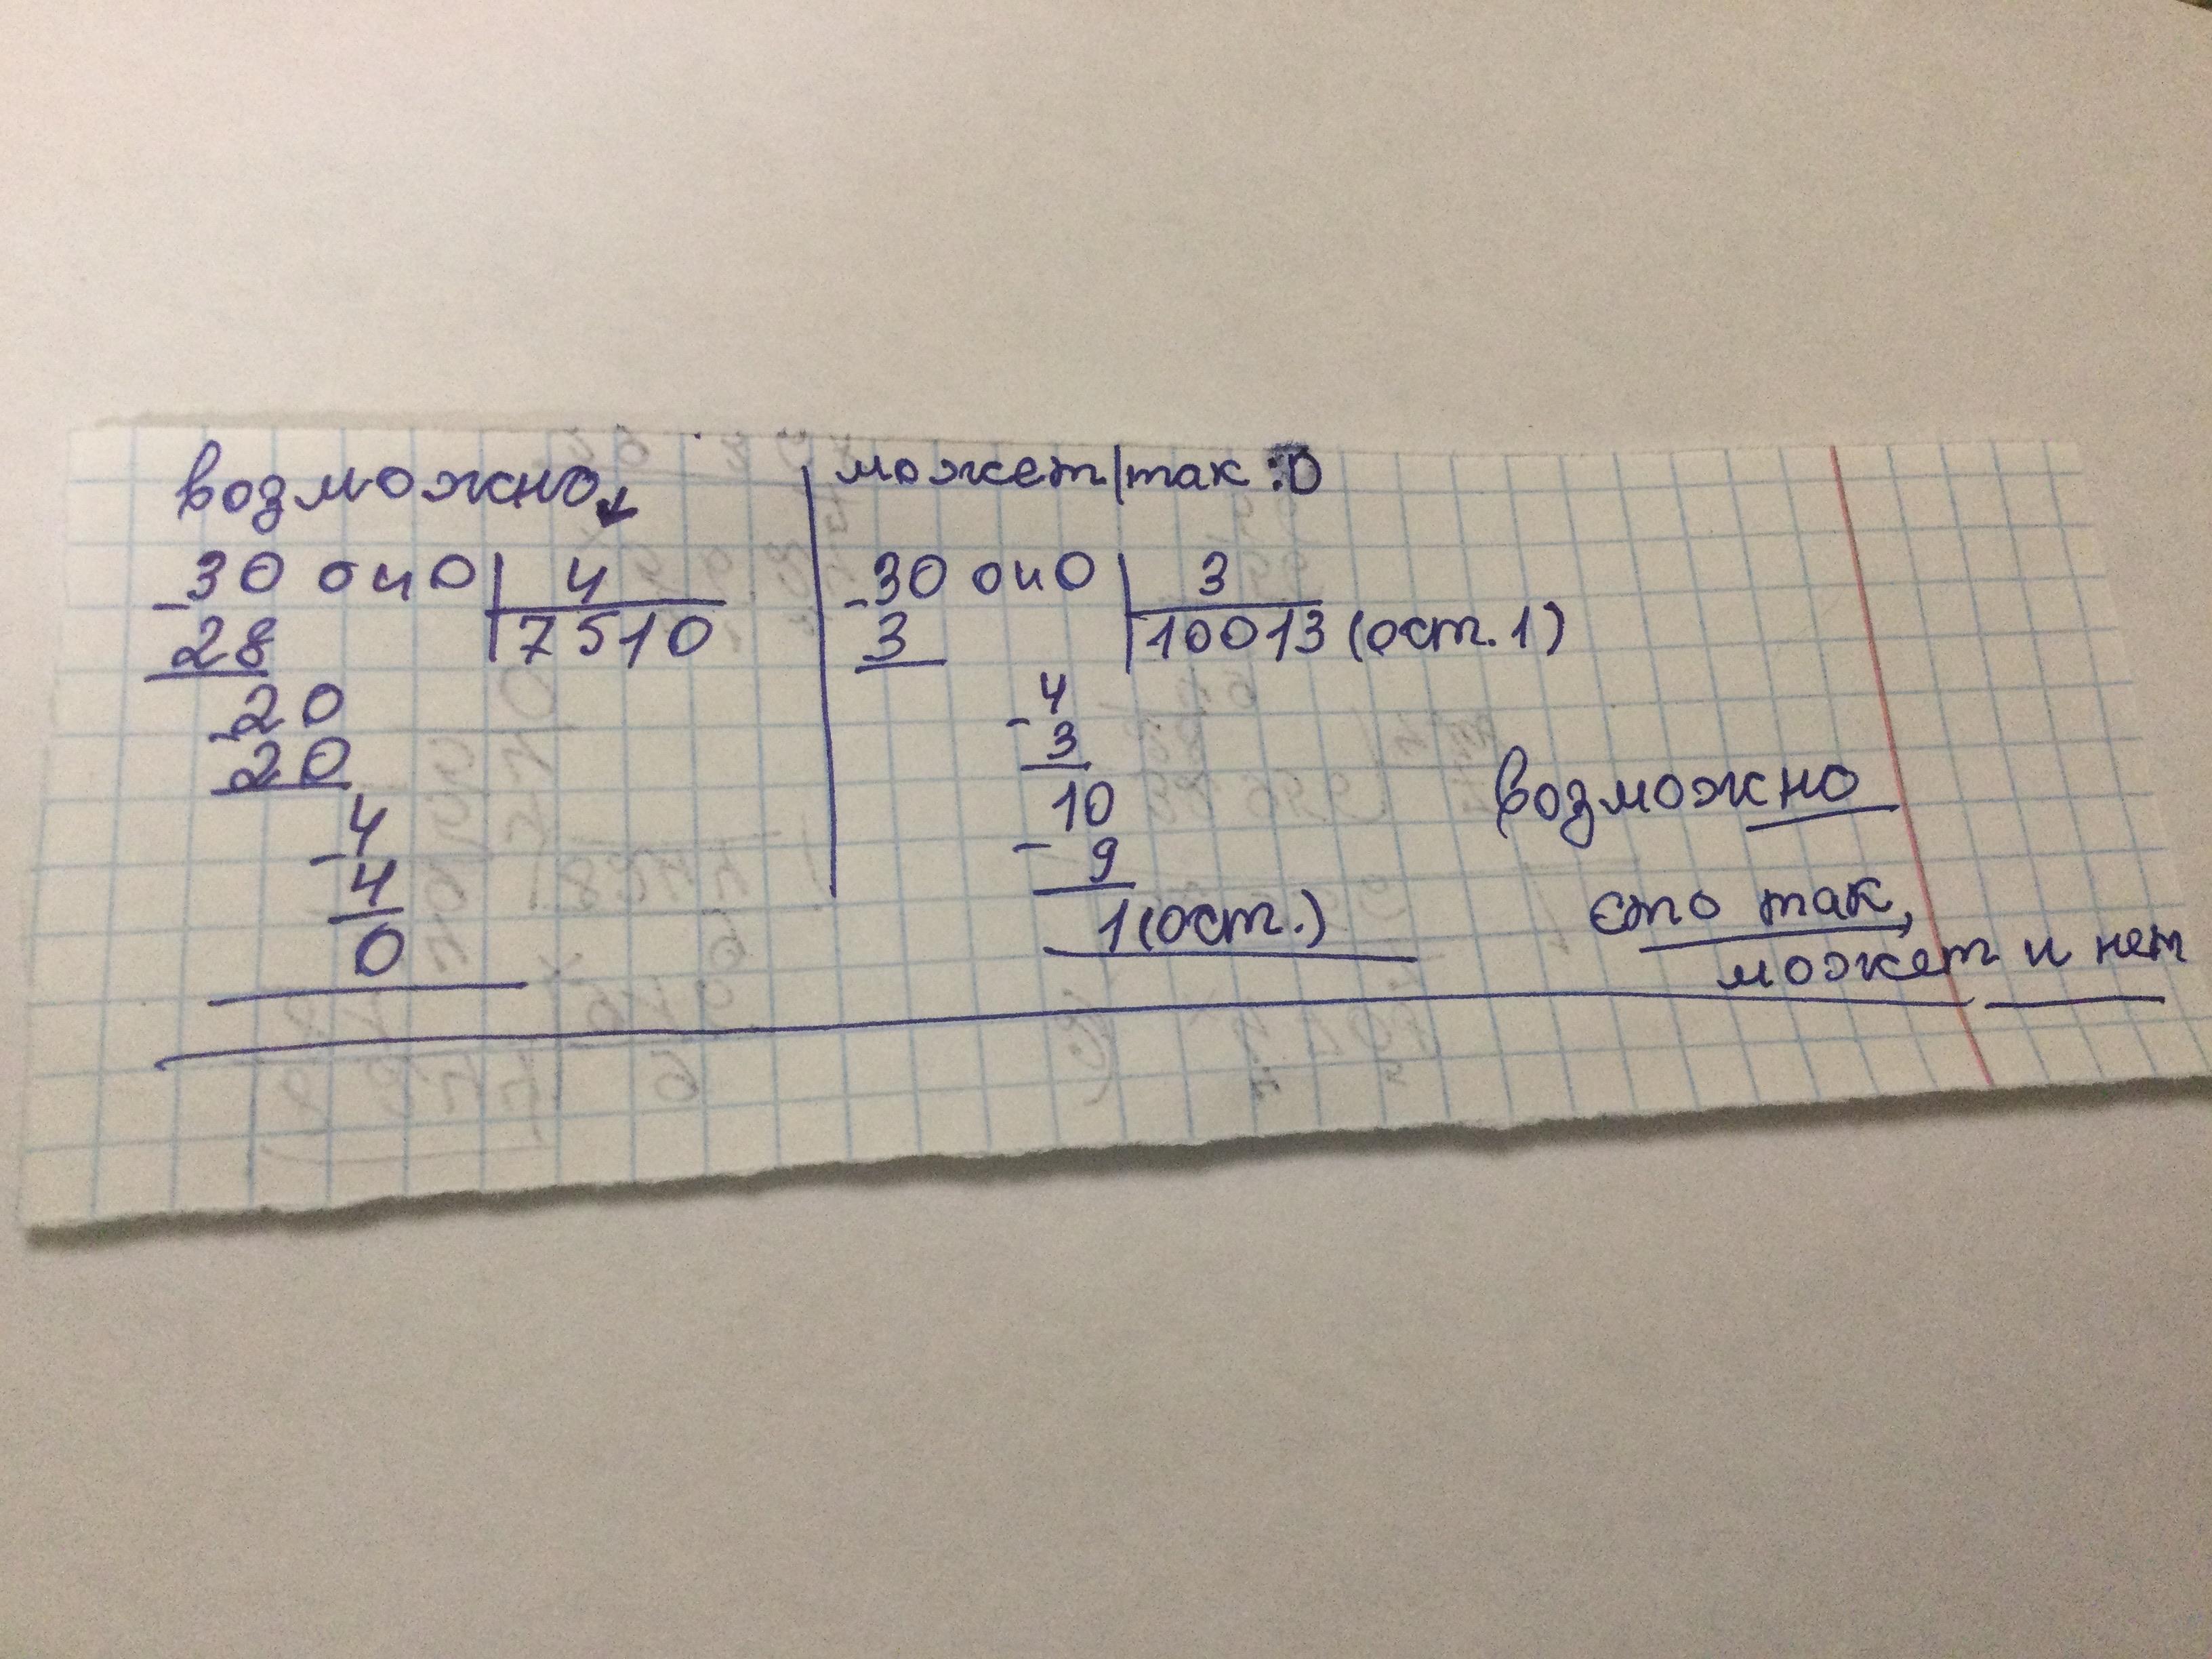 возможно↓
-30 040 | 4
28 | 7510
-20
20
-4
4
0
может так :D
-30 040 | 3
3 | 10013 (ост. 1)
-4
3
10
- 9
1 (ост.)
возможно
ето так,
может и нет